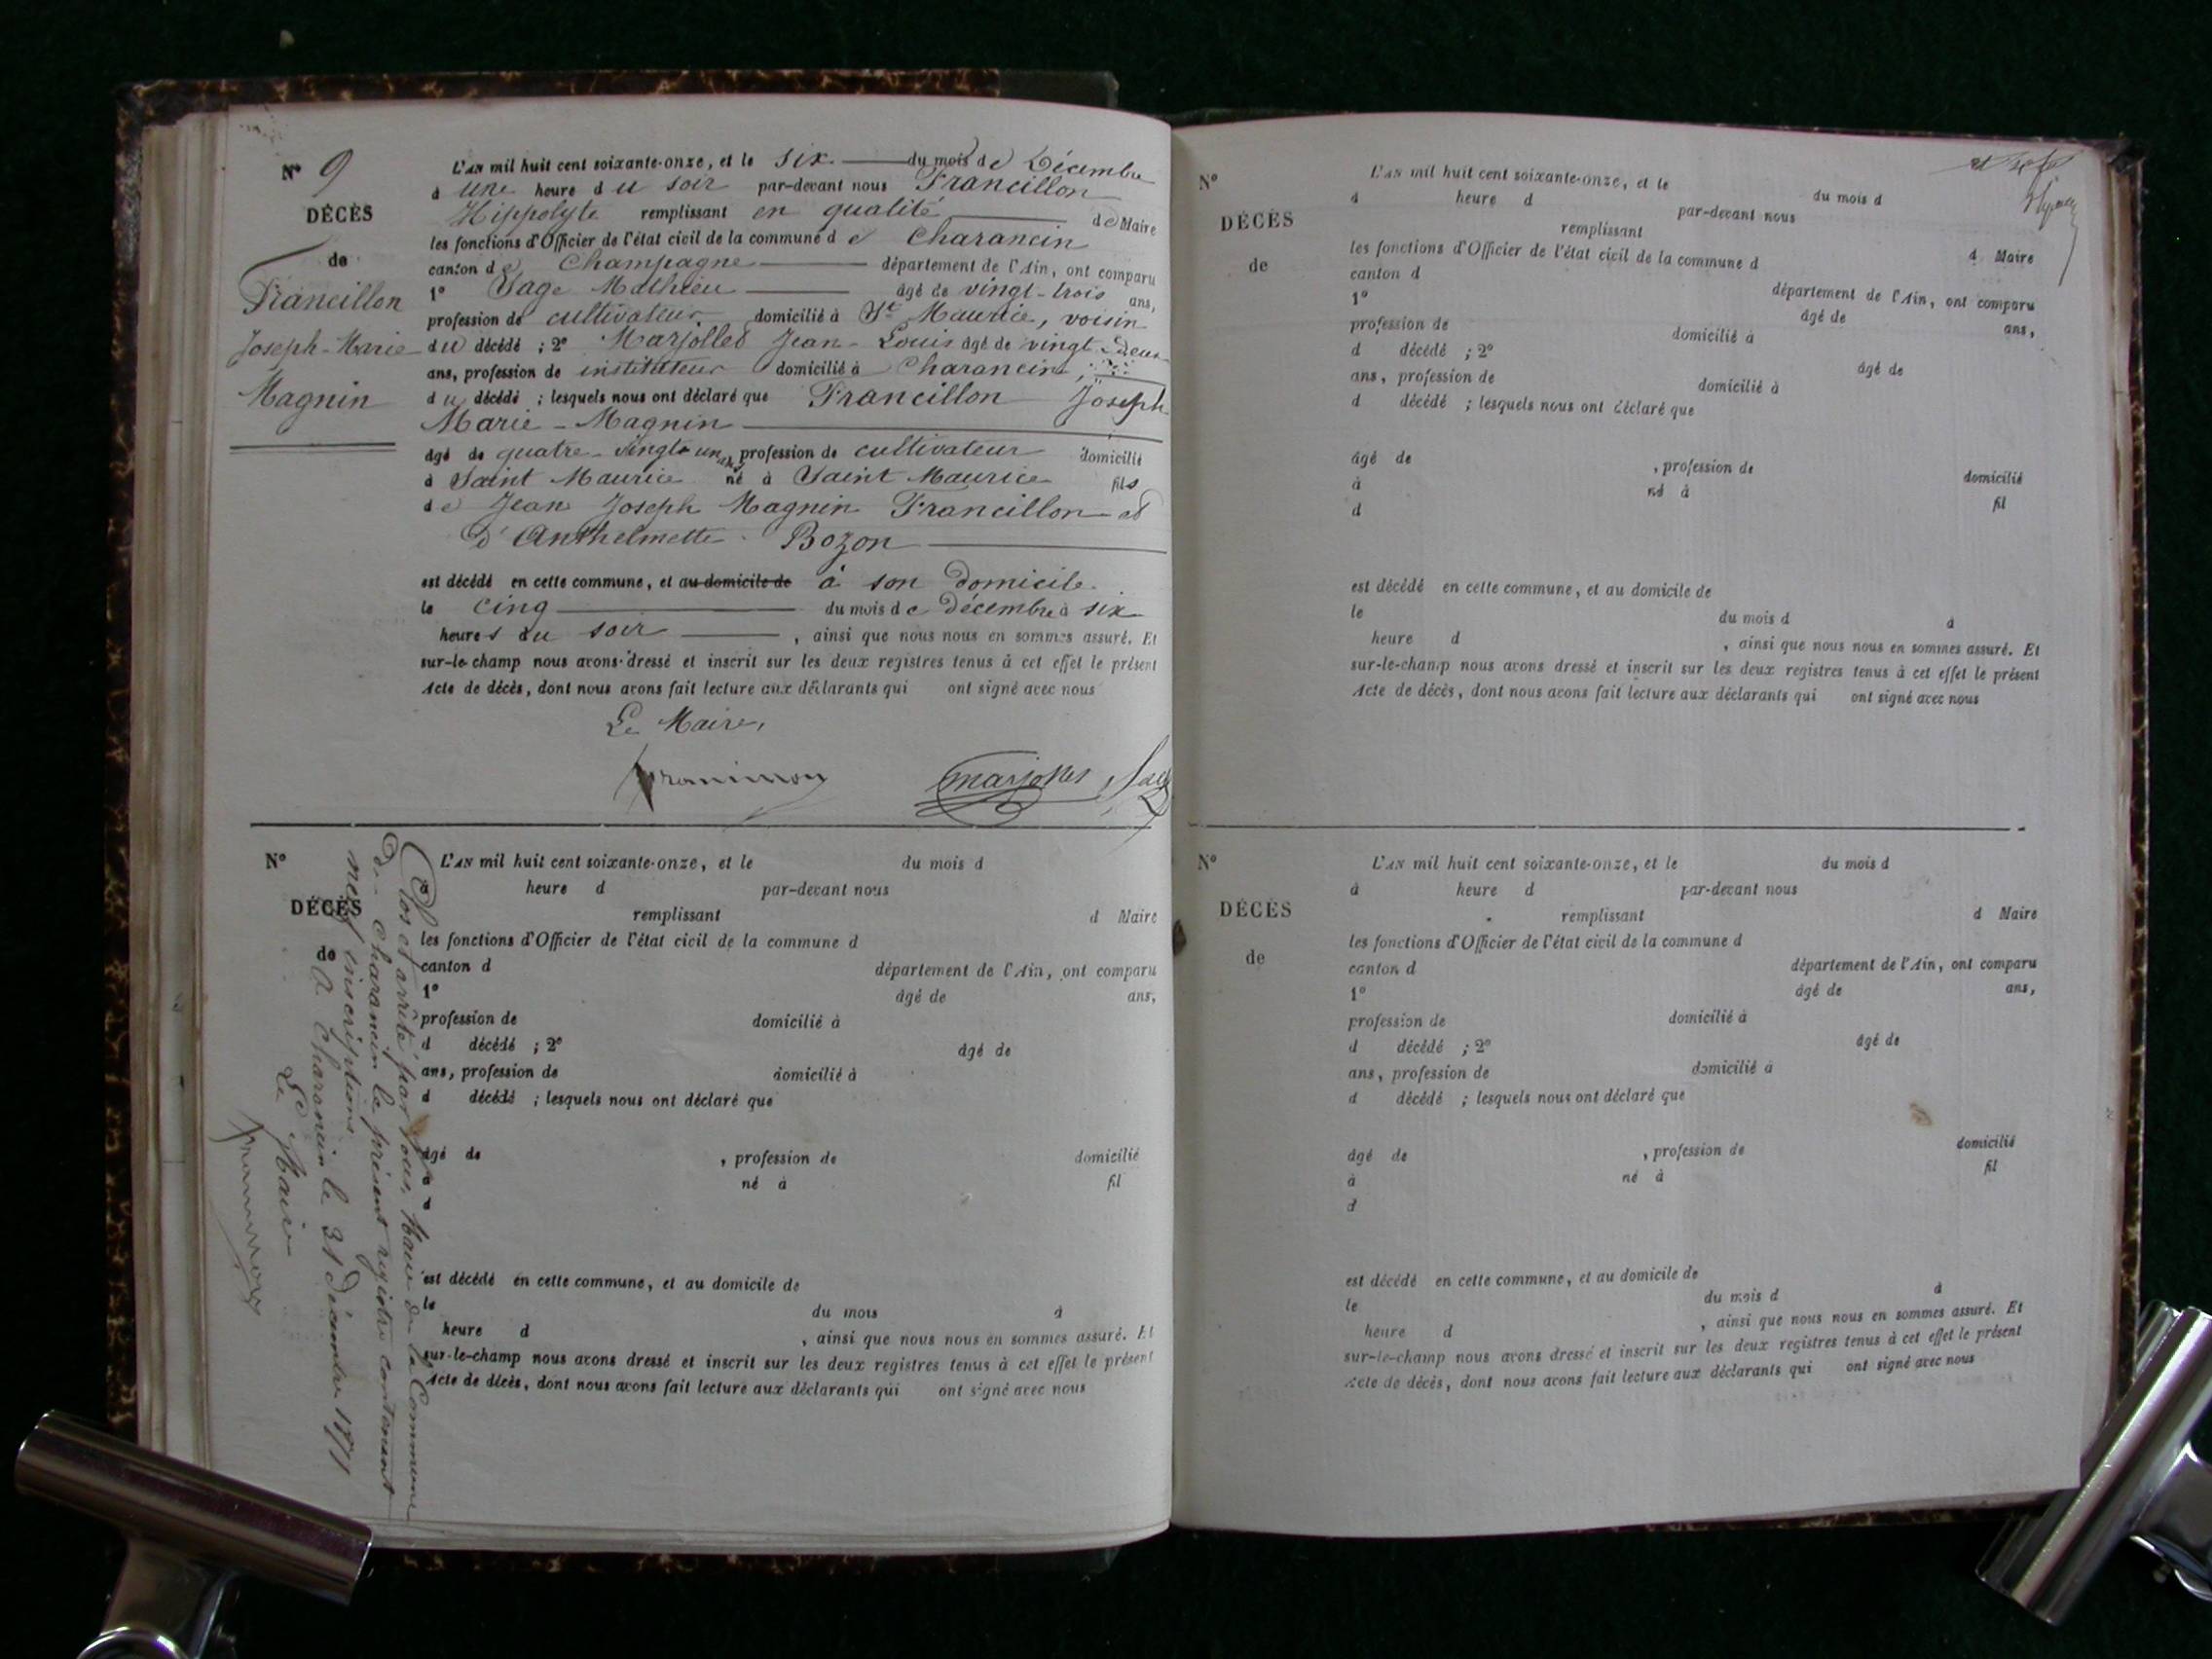 N° 9
DÉCÈS
de
Francillon
Joseph-Marie
Magnin
L'AN mil huit cent soixante-onze, et le six du mois de Décembre
à une heure du soir par-devant nous Francillon
Hippolyte remplissant en qualité de Maire
les fonctions d'Officier de l'état civil de la commune de Charancin
canton de Champagne département de l'Ain, ont comparu
1° Sage Mathieu âgé de vingt-trois ans,
profession de cultivateur domicilié à St Maurice, voisin
du décédé ; 2° Marjolles Jean-Louis âgé de vingt-deux
ans, profession de instituteur domicilié à Charancin,
du décédé ; lesquels nous ont déclaré que Francillon Joseph
Marie-Magnin
âgé de quatre-vingt un ans, profession de cultivateur domicilié
à Saint Maurice né à Saint Maurice fils
de Jean Joseph Magnin Francillon et
d'Anthelmette Bozon
est décédé en cette commune, et au domicile de à son Domicile.
le cinq du mois de Décembre à six
heures du soir , ainsi que nous nous en sommes assuré. Et
sur-le-champ nous avons dressé et inscrit sur les deux registres tenus à cet effet le présent
Acte de décès, dont nous avons fait lecture aux déclarants qui ont signé avec nous
Le Maire,
Francillon Marjolles Sage
N°
DÉCÈS
de
L'AN mil huit cent soixante-onze, et le du mois d
à heure d par-devant nous
remplissant d Maire
les fonctions d'Officier de l'état civil de la commune d
canton d département de l'Ain, ont comparu
1° âgé de ans,
profession de domicilié à
d décédé ; 2° âgé de
ans, profession de domicilié à
d décédé ; lesquels nous ont déclaré que
âgé de , profession de domicilié
à né à fil
d
est décédé en cette commune, et au domicile de
le du mois à
heure d , ainsi que nous nous en sommes assuré. Et
sur-le-champ nous avons dressé et inscrit sur les deux registres tenus à cet effet le présent
Acte de décès, dont nous avons fait lecture aux déclarants qui ont signé avec nous
Clos et arrêté par nous, Maire de la Commune
de Charancin le présent registre contenant
neuf inscriptions
A Charancin le 31 Décembre 1871
Le Maire
Francillon
N°
DÉCÈS
de
L'AN mil huit cent soixante-onze, et le du mois d
à heure d par-devant nous
remplissant d Maire
les fonctions d'Officier de l'état civil de la commune d
canton d département de l'Ain, ont comparu
1° âgé de ans,
profession de domicilié à
d décédé ; 2° âgé de
ans, profession de domicilié à
d décédé ; lesquels nous ont déclaré que
âgé de , profession de domicilié
à né à fil
d
est décédé en cette commune, et au domicile de
le du mois d à
heure d , ainsi que nous nous en sommes assuré. Et
sur-le-champ nous avons dressé et inscrit sur les deux registres tenus à cet effet le présent
Acte de décès, dont nous avons fait lecture aux déclarants qui ont signé avec nous
N°
DÉCÈS
de
L'AN mil huit cent soixante-onze, et le du mois d
à heure d par-devant nous
remplissant d Maire
les fonctions d'Officier de l'état civil de la commune d
canton d département de l'Ain, ont comparu
1° âgé de ans,
profession de domicilié à
d décédé ; 2° âgé de
ans, profession de domicilié à
d décédé ; lesquels nous ont déclaré que
âgé de , profession de domicilié
à né à fil
d
est décédé en cette commune, et au domicile de
le du mois d à
heure d , ainsi que nous nous en sommes assuré. Et
sur-le-champ nous avons dressé et inscrit sur les deux registres tenus à cet effet le présent
Acte de décès, dont nous avons fait lecture aux déclarants qui ont signé avec nous